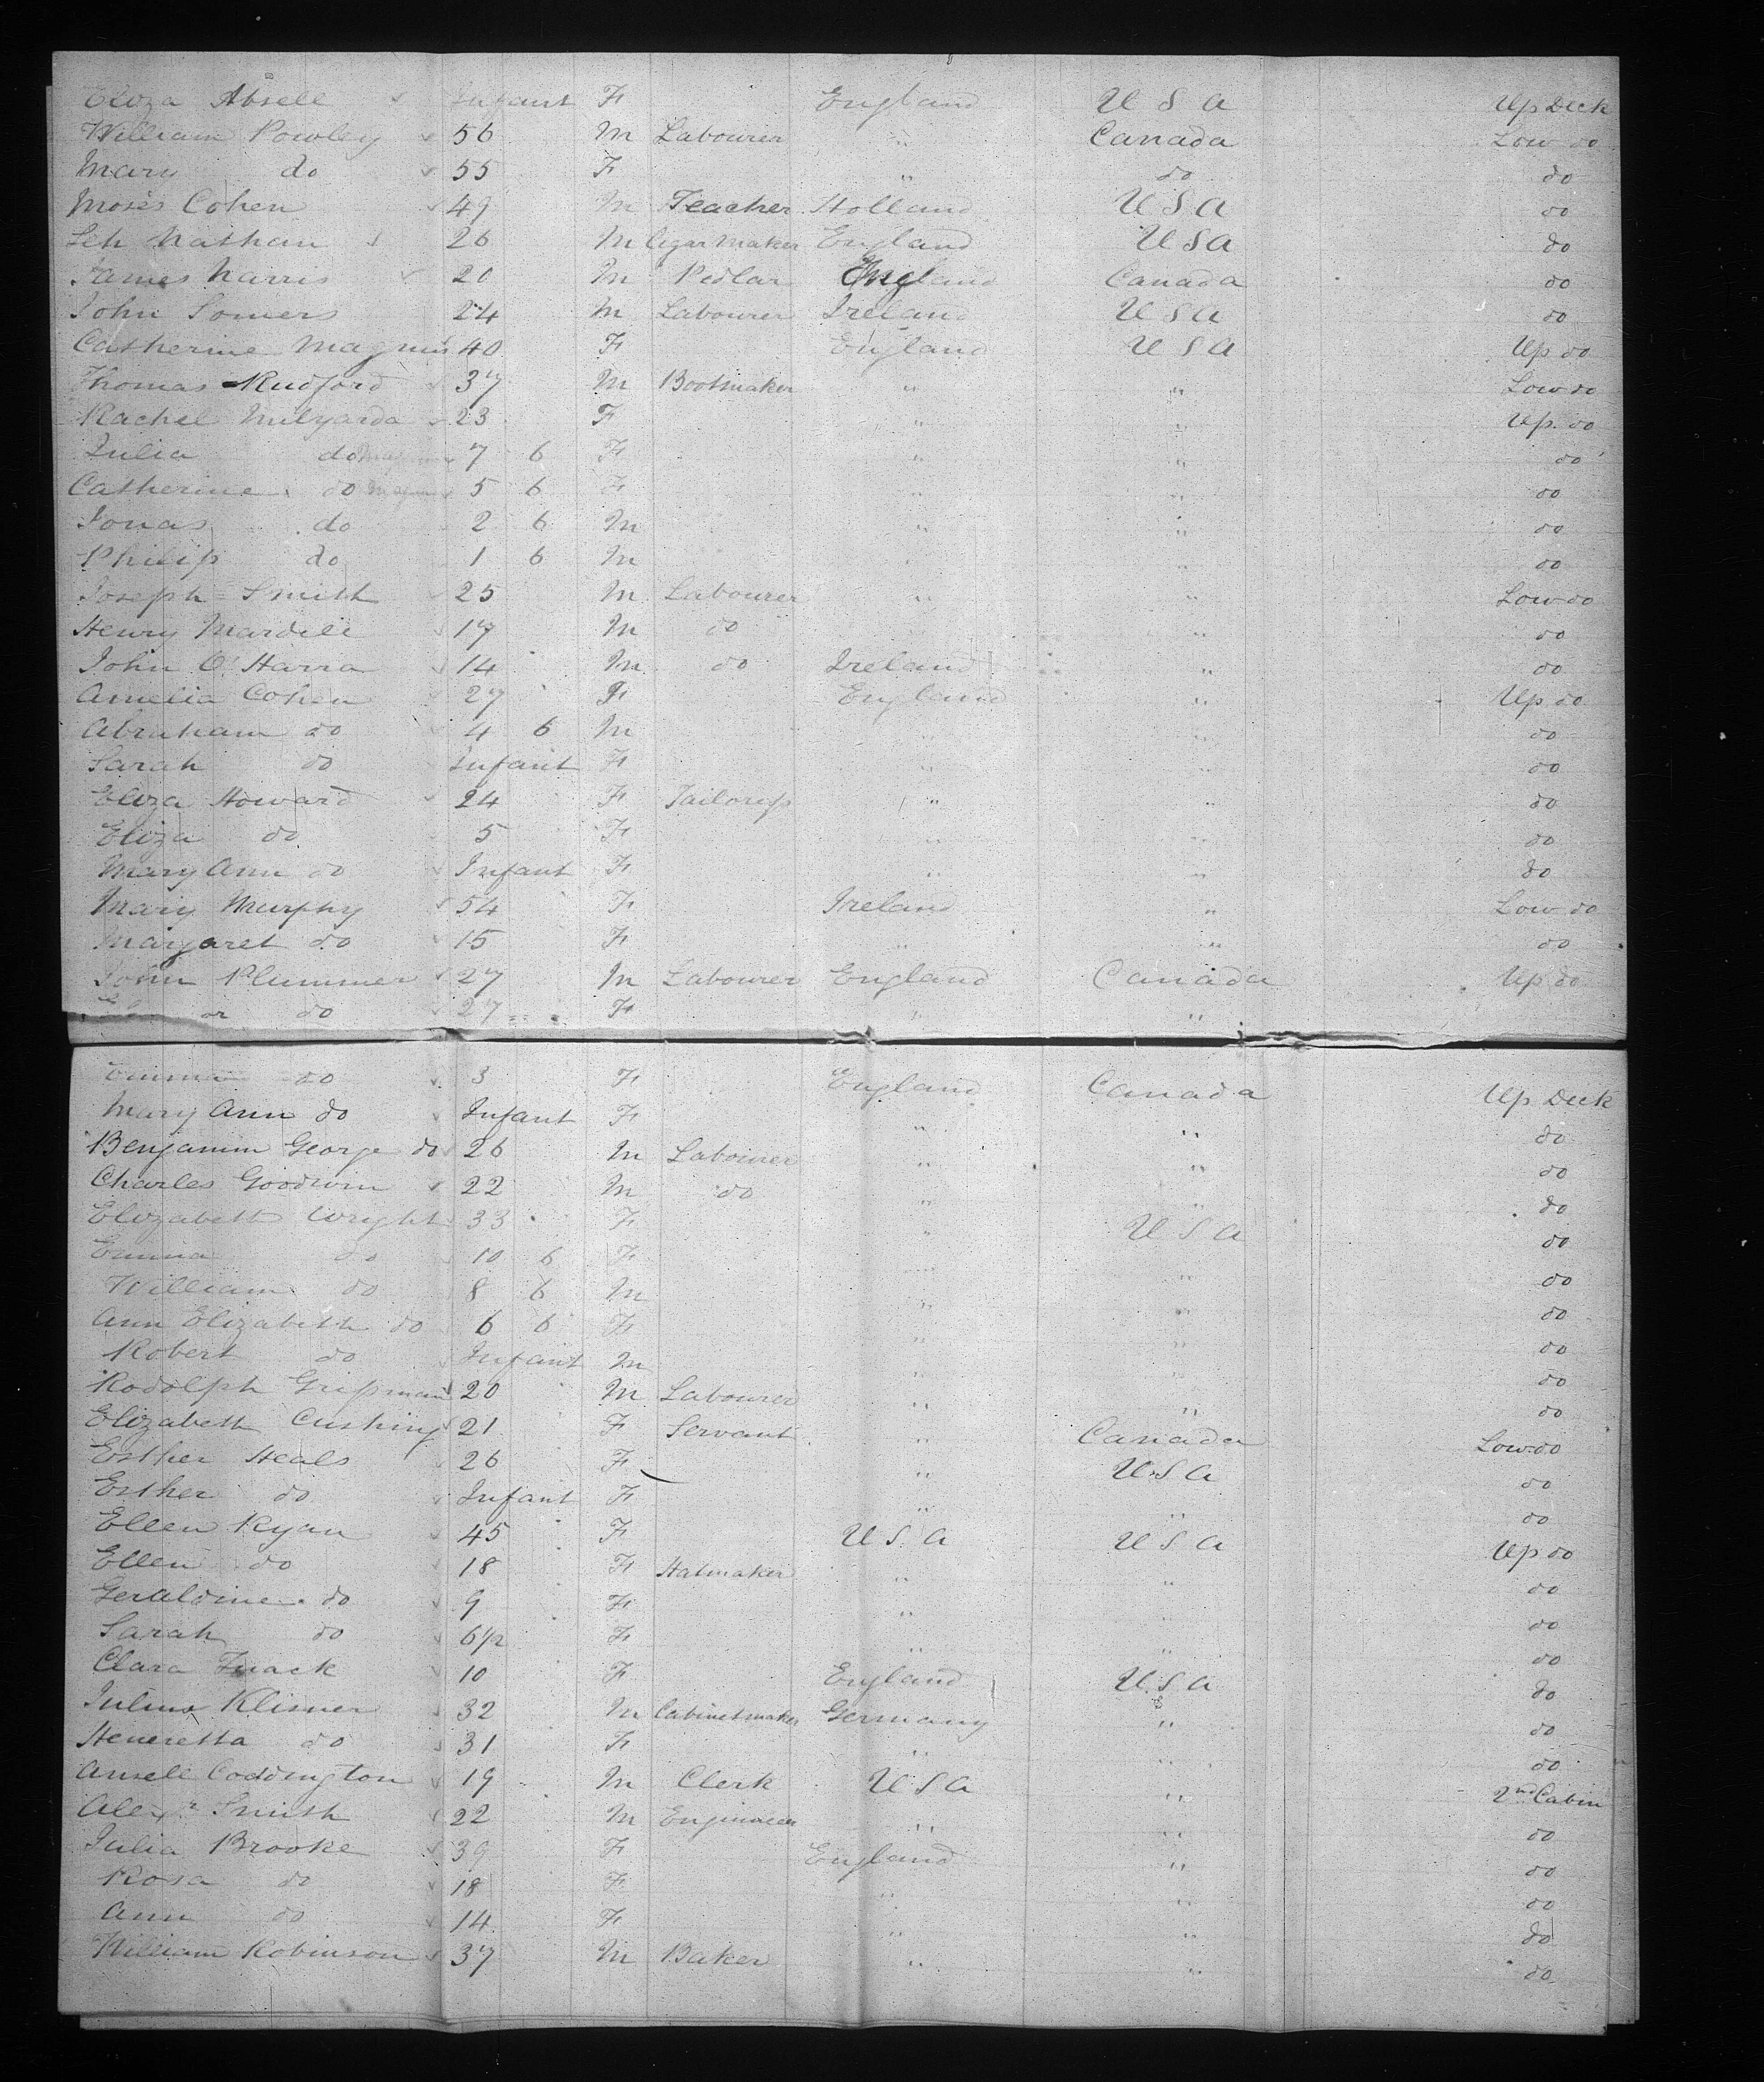 Eliza Absell Infant F England U S A Up Deck
William Powley 56 M Labourer " Canada Low do
Mary do 55 F " do do
Moses Cohen 49 M Teacher Holland U S A do
Nathan 26 M Cigar Maker England U S A do
James Harris 20 M Pedlar England Canada do
John Somers 24 M Labourer Ireland U S A do
Catherine Magnus 40 F England U S A Up do
Thomas Rudford 37 M Bootmaker " " Low do
Rachel Milyarda 23 F " " Up do
Julia do 7 6 F " " do
Catherine do 5 6 F " " do
Jonas do 2 6 M " " do
Philip do 1 6 M " " do
Joseph Smith 25 M Labourer " " Low do
Henry Mardell 17 M do " do
John O'Harra 14 M do Ireland " do
Amelia Cohen 27 F England " Up do
Abraham do 4 6 M " do
Sarah do Infant F " " do
Eliza Howard 24 F Tailoress " " do
Eliza do 5 F " " do
Mary Ann do Infant F " " do
Mary Murphy 54 F Ireland " Low do
Margaret do 15 F " " do
John Plummer 27 M Labourer England Canada Up do
do 27 F " "
Emma do 3 F England Canada Up Deck
Mary Ann do Infant F " " do
Benjamin George do 26 M Labourer " " do
Charles Goodwin 22 M do " " do
Elizabeth Wright 33 F " U S A do
Emma do 10 6 F " " do
William do 8 6 M " " do
Ann Elizabeth do 6 6 F " " do
Robert do Infant M " " do
Rodolph Grissman 20 M Labourer " " do
Elizabeth Cushing 21 F Servant " Canada Low do
Esther Heals 26 F " U S A do
Esther do Infant F " " do
Ellen Ryan 45 F U S A U S A Up do
Ellen do 18 F Hatmaker " " do
Geraldine do 9 F " " do
Sarah do 6 1/2 F " " do
Clara 10 F England U S A do
Julius Klisner 32 M Cabinetmaker Germany " do
Heneretta do 31 F " " do
Ansell Coddington 19 M Clerk U S A " 2nd Cabin
Alexr Smith 22 M Engineer " " do
Julia Brooke 39 F England " do
Rosa do 18 F " " do
Ann do 14 F " " do
William Robinson 37 M Baker " " do